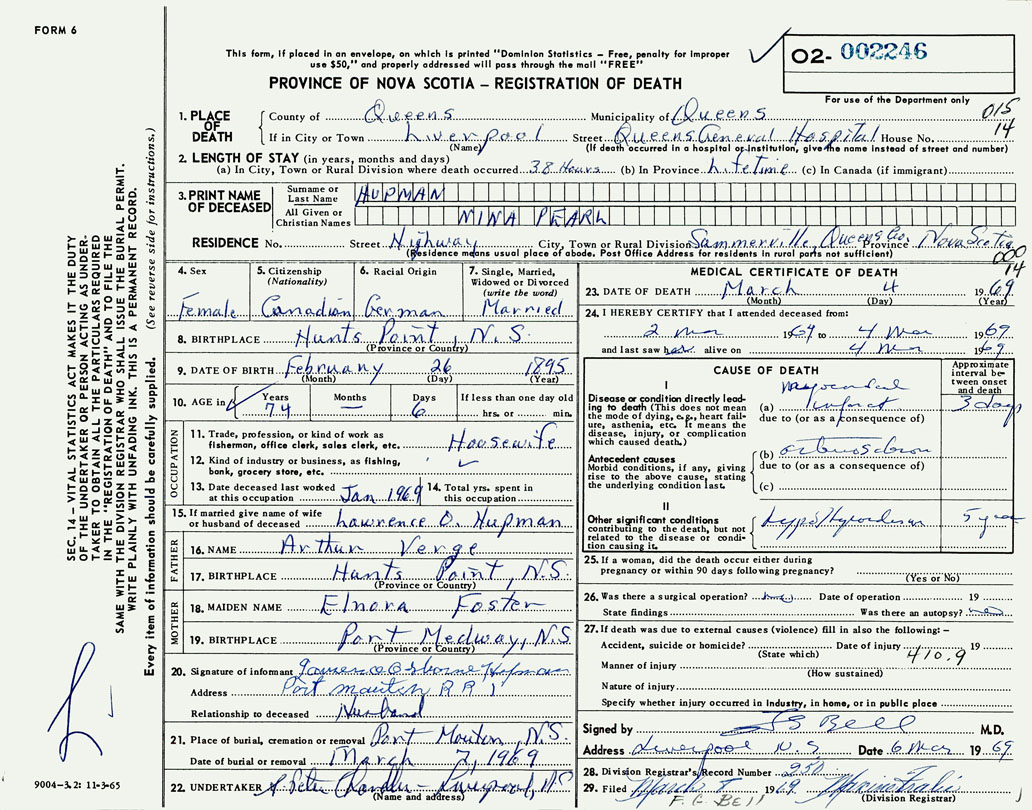 FORM 6
This form, if placed in an envelope, on which is printed "Dominion Statistics – Free, penalty for improper
use $50," and properly addressed will pass through the mail "FREE"
PROVINCE OF NOVA SCOTIA – REGISTRATION OF DEATH
O2- 002246
For use of the Department only
015
14
1. PLACE OF DEATH County of Queens Municipality of Queens
If in City or Town Liverpool Street Queens General Hospital House No.
(Name) (If death occurred in a hospital or institution, give the name instead of street and number)
2. LENGTH OF STAY (in years, months and days)
(a) In City, Town or Rural Division where death occurred 38 Hours (b) In Province Lifetime (c) In Canada (if immigrant)
3. PRINT NAME OF DECEASED
Surname or Last Name HUPMAN
All Given or Christian Names NINA PEARL
RESIDENCE No. Street Highway City, Town or Rural Division Sammerville, Queens Co. Province Nova Scotia
(Residence means usual place of abode. Post Office Address for residents in rural parts not sufficient)
000
14
4. Sex
Female
5. Citizenship
(Nationality)
Canadian
6. Racial Origin
German
7. Single, Married,
Widowed or Divorced
(write the word)
Married
8. BIRTHPLACE Hunts Point, N.S.
(Province or Country)
9. DATE OF BIRTH February 26 1895
(Month) (Day) (Year)
10. AGE in Years 74 Months — Days 6 If less than one day old
hrs. or min.
OCCUPATION
11. Trade, profession, or kind of work as
fisherman, office clerk, sales clerk, etc. Housewife
12. Kind of industry or business, as fishing,
bank, grocery store, etc.
13. Date deceased last worked
at this occupation Jan 1969
14. Total yrs. spent in
this occupation
15. If married give name of wife
or husband of deceased Lawrence O. Hupman
FATHER
16. NAME Arthur Verge
17. BIRTHPLACE Hunts Point, N.S.
(Province or Country)
MOTHER
18. MAIDEN NAME Elnora Foster
19. BIRTHPLACE Port Medway, N.S
(Province or Country)
20. Signature of informant Lawrence Osborne Hupman
Address Port Mouton RR 1
Relationship to deceased Husband
21. Place of burial, cremation or removal Port Mouton, N.S.
Date of burial or removal March 7, 1969
22. UNDERTAKER Chandler – Liverpool, NS
(Name and address)
MEDICAL CERTIFICATE OF DEATH
23. DATE OF DEATH March 4 1969
(Month) (Day) (Year)
24. I HEREBY CERTIFY that I attended deceased from:
2 Mar 1969 to 4 Mar 1969
and last saw her alive on 4 Mar 1969
CAUSE OF DEATH
Approximate
interval be-
tween onset
and death
I
Disease or condition directly lead-
ing to death (This does not mean
the mode of dying, e.g., heart fail-
ure, asthenia, etc. It means the
disease, injury, or complication
which caused death.)
myocardial
(a) infarct 3 days
due to (or as a consequence of)
Antecedent causes
Morbid conditions, if any, giving
rise to the above cause, stating
the underlying condition last.
(b)
due to (or as a consequence of)
(c)
II
Other significant conditions
contributing to the death, but not
related to the disease or condi-
tion causing it.
5 years
25. If a woman, did the death occur either during
pregnancy or within 90 days following pregnancy?
(Yes or No)
26. Was there a surgical operation? Date of operation 19
State findings Was there an autopsy?
27. If death was due to external causes (violence) fill in also the following: –
Accident, suicide or homicide? Date of injury 19
(State which) 410.9
Manner of injury
(How sustained)
Nature of injury
Specify whether injury occurred in industry, in home, or in public place
Signed by Bell M.D.
Address Liverpool N.S Date 6 Mar 1969
28. Division Registrar's Record Number 250
29. Filed March 8 1969
F. G. BELL (Division Registrar)
SEC. 14 – VITAL STATISTICS ACT MAKES IT THE DUTY
OF THE UNDERTAKER OR PERSON ACTING AS UNDER-
TAKER TO OBTAIN ALL THE PARTICULARS REQUIRED
IN THE "REGISTRATION OF DEATH" AND TO FILE THE
SAME WITH THE DIVISION REGISTRAR WHO SHALL ISSUE THE BURIAL PERMIT.
WRITE PLAINLY WITH UNFADING INK. THIS IS A PERMANENT RECORD.
Every item of information should be carefully supplied. (See reverse side for instructions.)
9004–3.2: 11-3-65